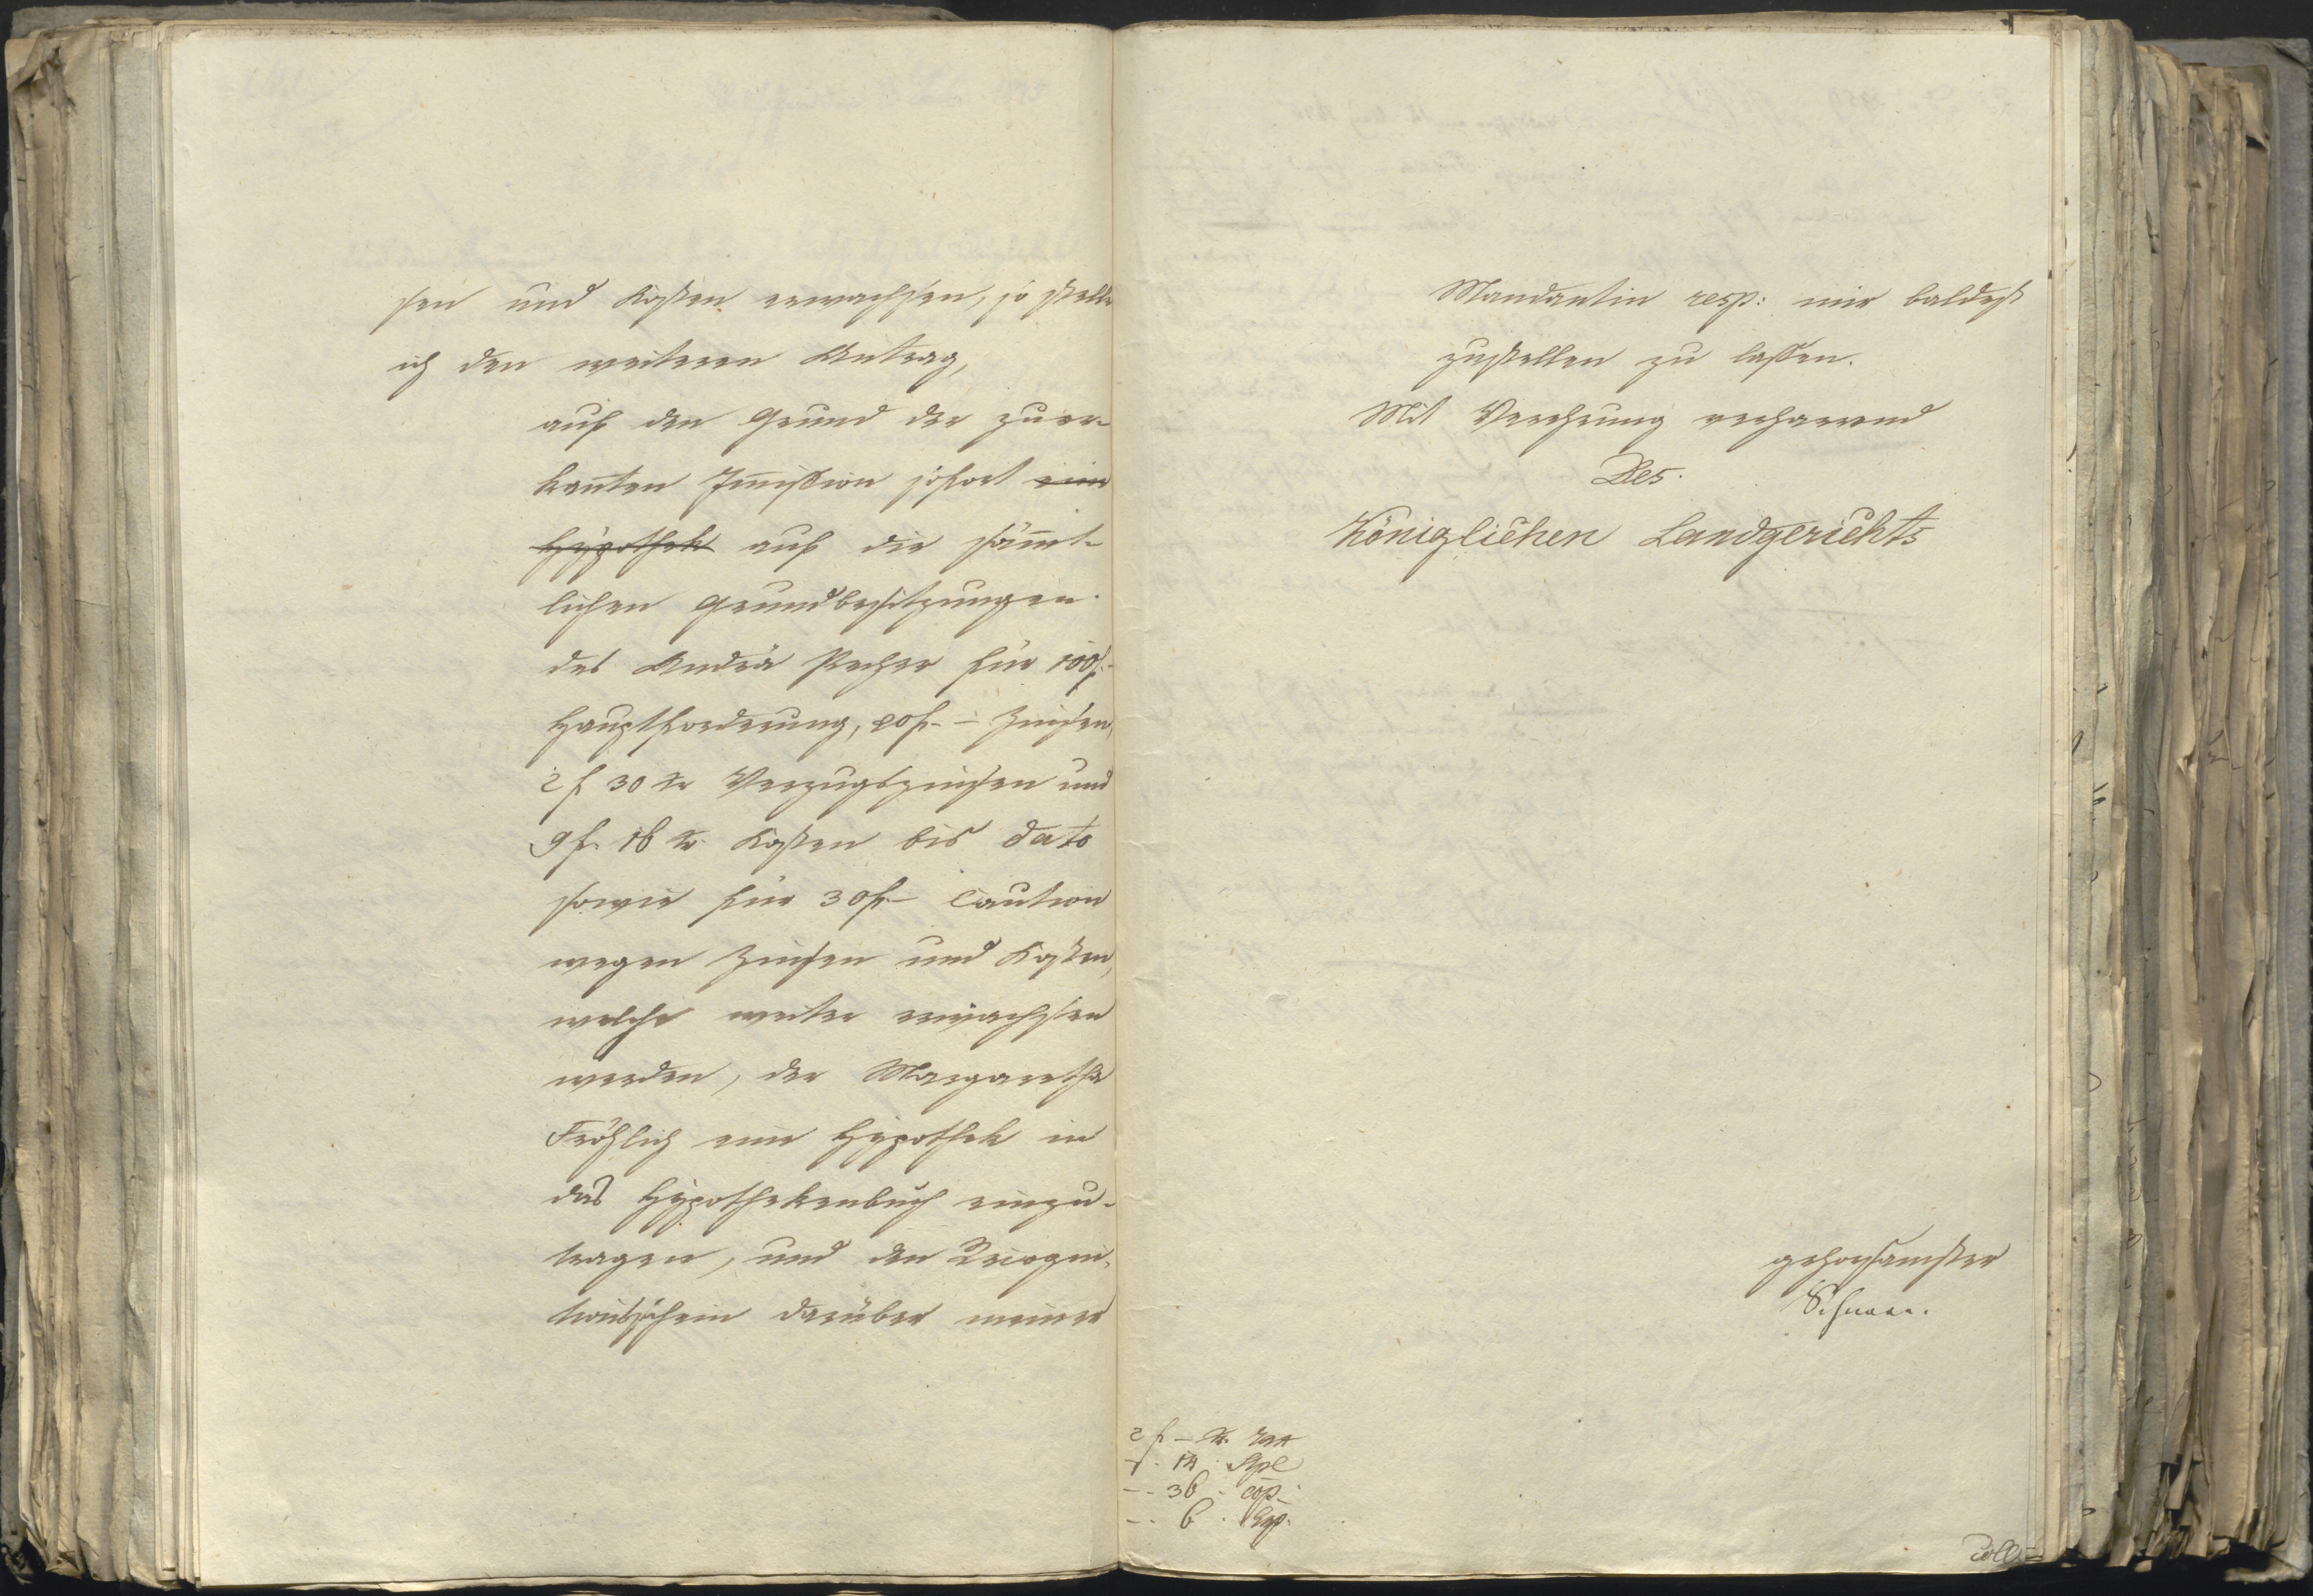 sen und Kosten erwachsen, so stelle
ich den weiteren Antrag,
auf den Grund der zuer-
kannten Immission sofort eine
Hypothek auf die sämmt-
lichen Grundbesitzungen
des Andrä Pecher für 100 f.
Hauptforderung, 20 f. – Zinsen,
2 f 30 kr Verzugszinsen und
9 f. 16 kr Kosten bis dato
sowie für 30 f – Caution
wegen Zinsen und Kosten,
welche weiter erwachsen
werden, der Margaretha
Fröhlich eine Hypothek in
das Hypothekenbuch einzu-
tragen, und den Recogni-
tionsschein darüber meiner
Mandantin resp: mir baldest
zustellen zu lassen.
Mit Verehrung verharrend
Des
Königlichen Landgerichts
gehorsamster
2 f – kr.
14 Stpl
– . 36 . cop.
– . 6 . Exp.
coll.